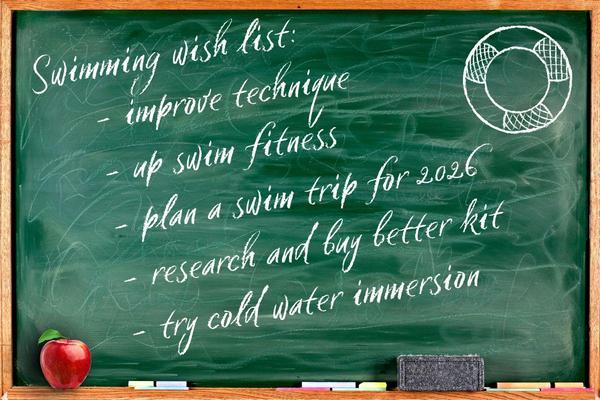 Swimming wish list:
- improve technique
- up swim fitness
- plan a swim trip for 2026
- research and buy better kit
- try cold water immersion